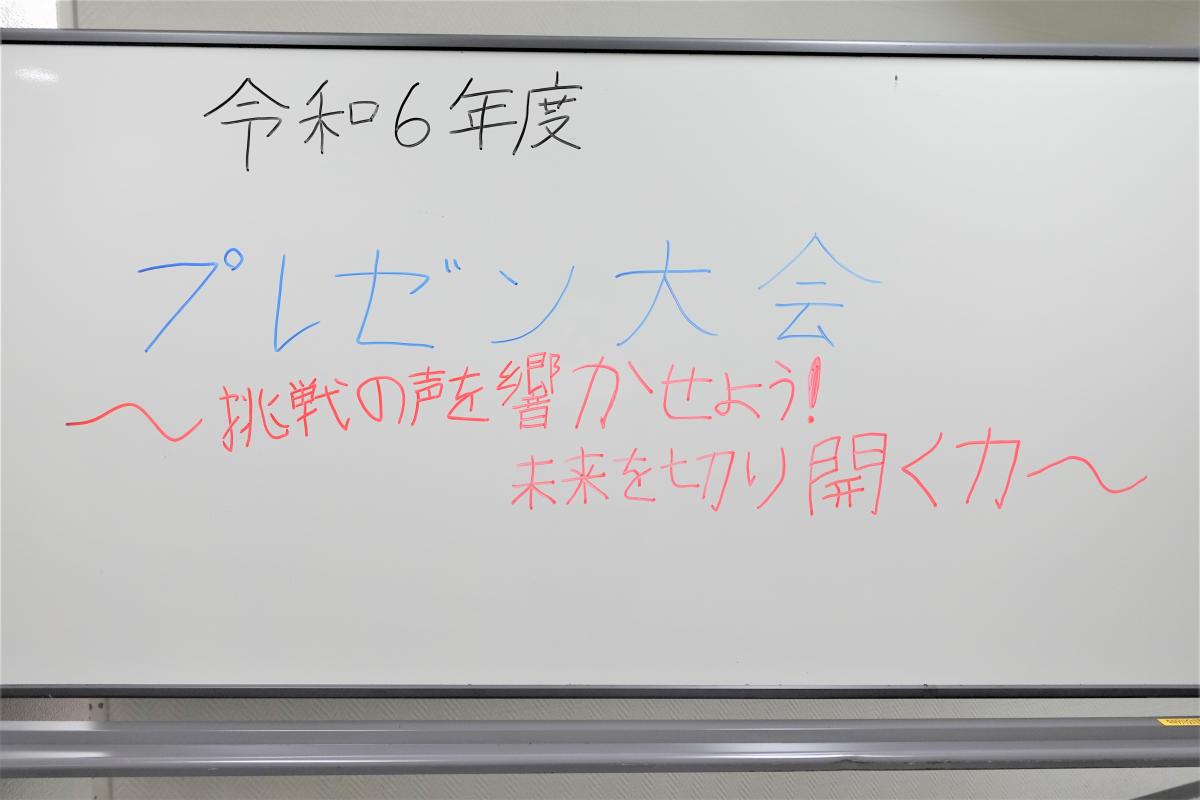 令和6年度
プレゼン大会
～挑戦の声を響かせよう!
未来を切り開く力～